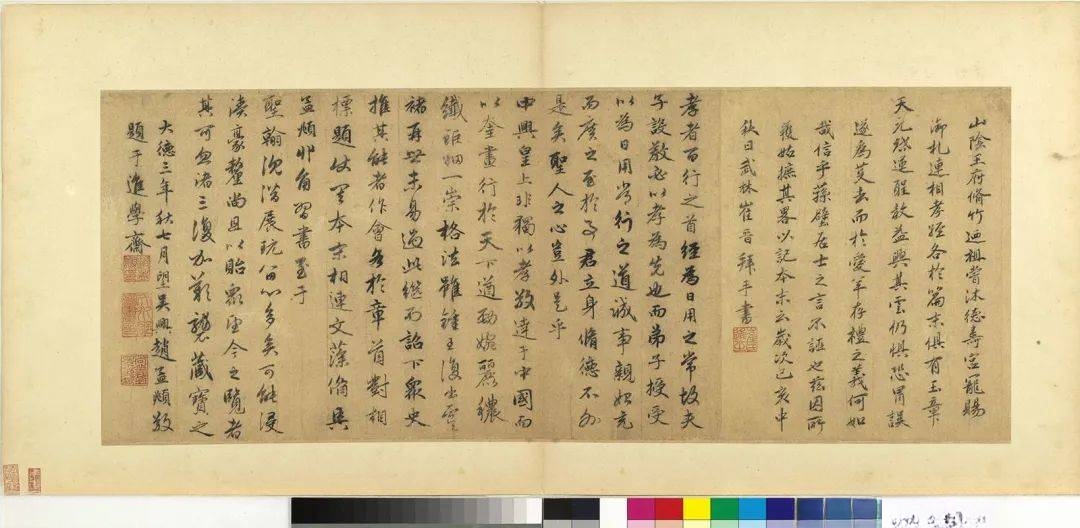 山陰王府脩竹廼祖嘗沐德壽宮寵賜
御札連相孝經各於篇末俱有玉章
天元殘運程故益興其雲仍俱恐胃誤
遂為莫去而於愛羊存禮之義何如
哉信乎蓀壁居士之言不誣也茲因所
獲姑摭其畧以記本末云歲次己亥中
秋日武林崔晉拜手書
孝者百行之首經為日用之常故夫
子設教必以孝為先也而弟子授受
以為日用常行之道誠事親始充
而廣之至於事君立身脩德不外
是矣聖人之心豈外是乎
中興皇上非獨以孝敬達于中國而
以奎畫行於天下遒勁婉麗穠
纖距細一崇格法雖鍾王復出虞
褚再世未易過此繼而詔下眾史
推其能者作會各於章首對相
標題仗畢本末相連文藻備具
孟頫丱角習書墨于
聖翰沈潛展玩留心多矣可能浸
淩豪釐尚且以貽眾陋今之覽者
其可忽諸三復加歎襲藏寶之
大德三年秋七月望吳興趙孟頫敬
題于進學齋